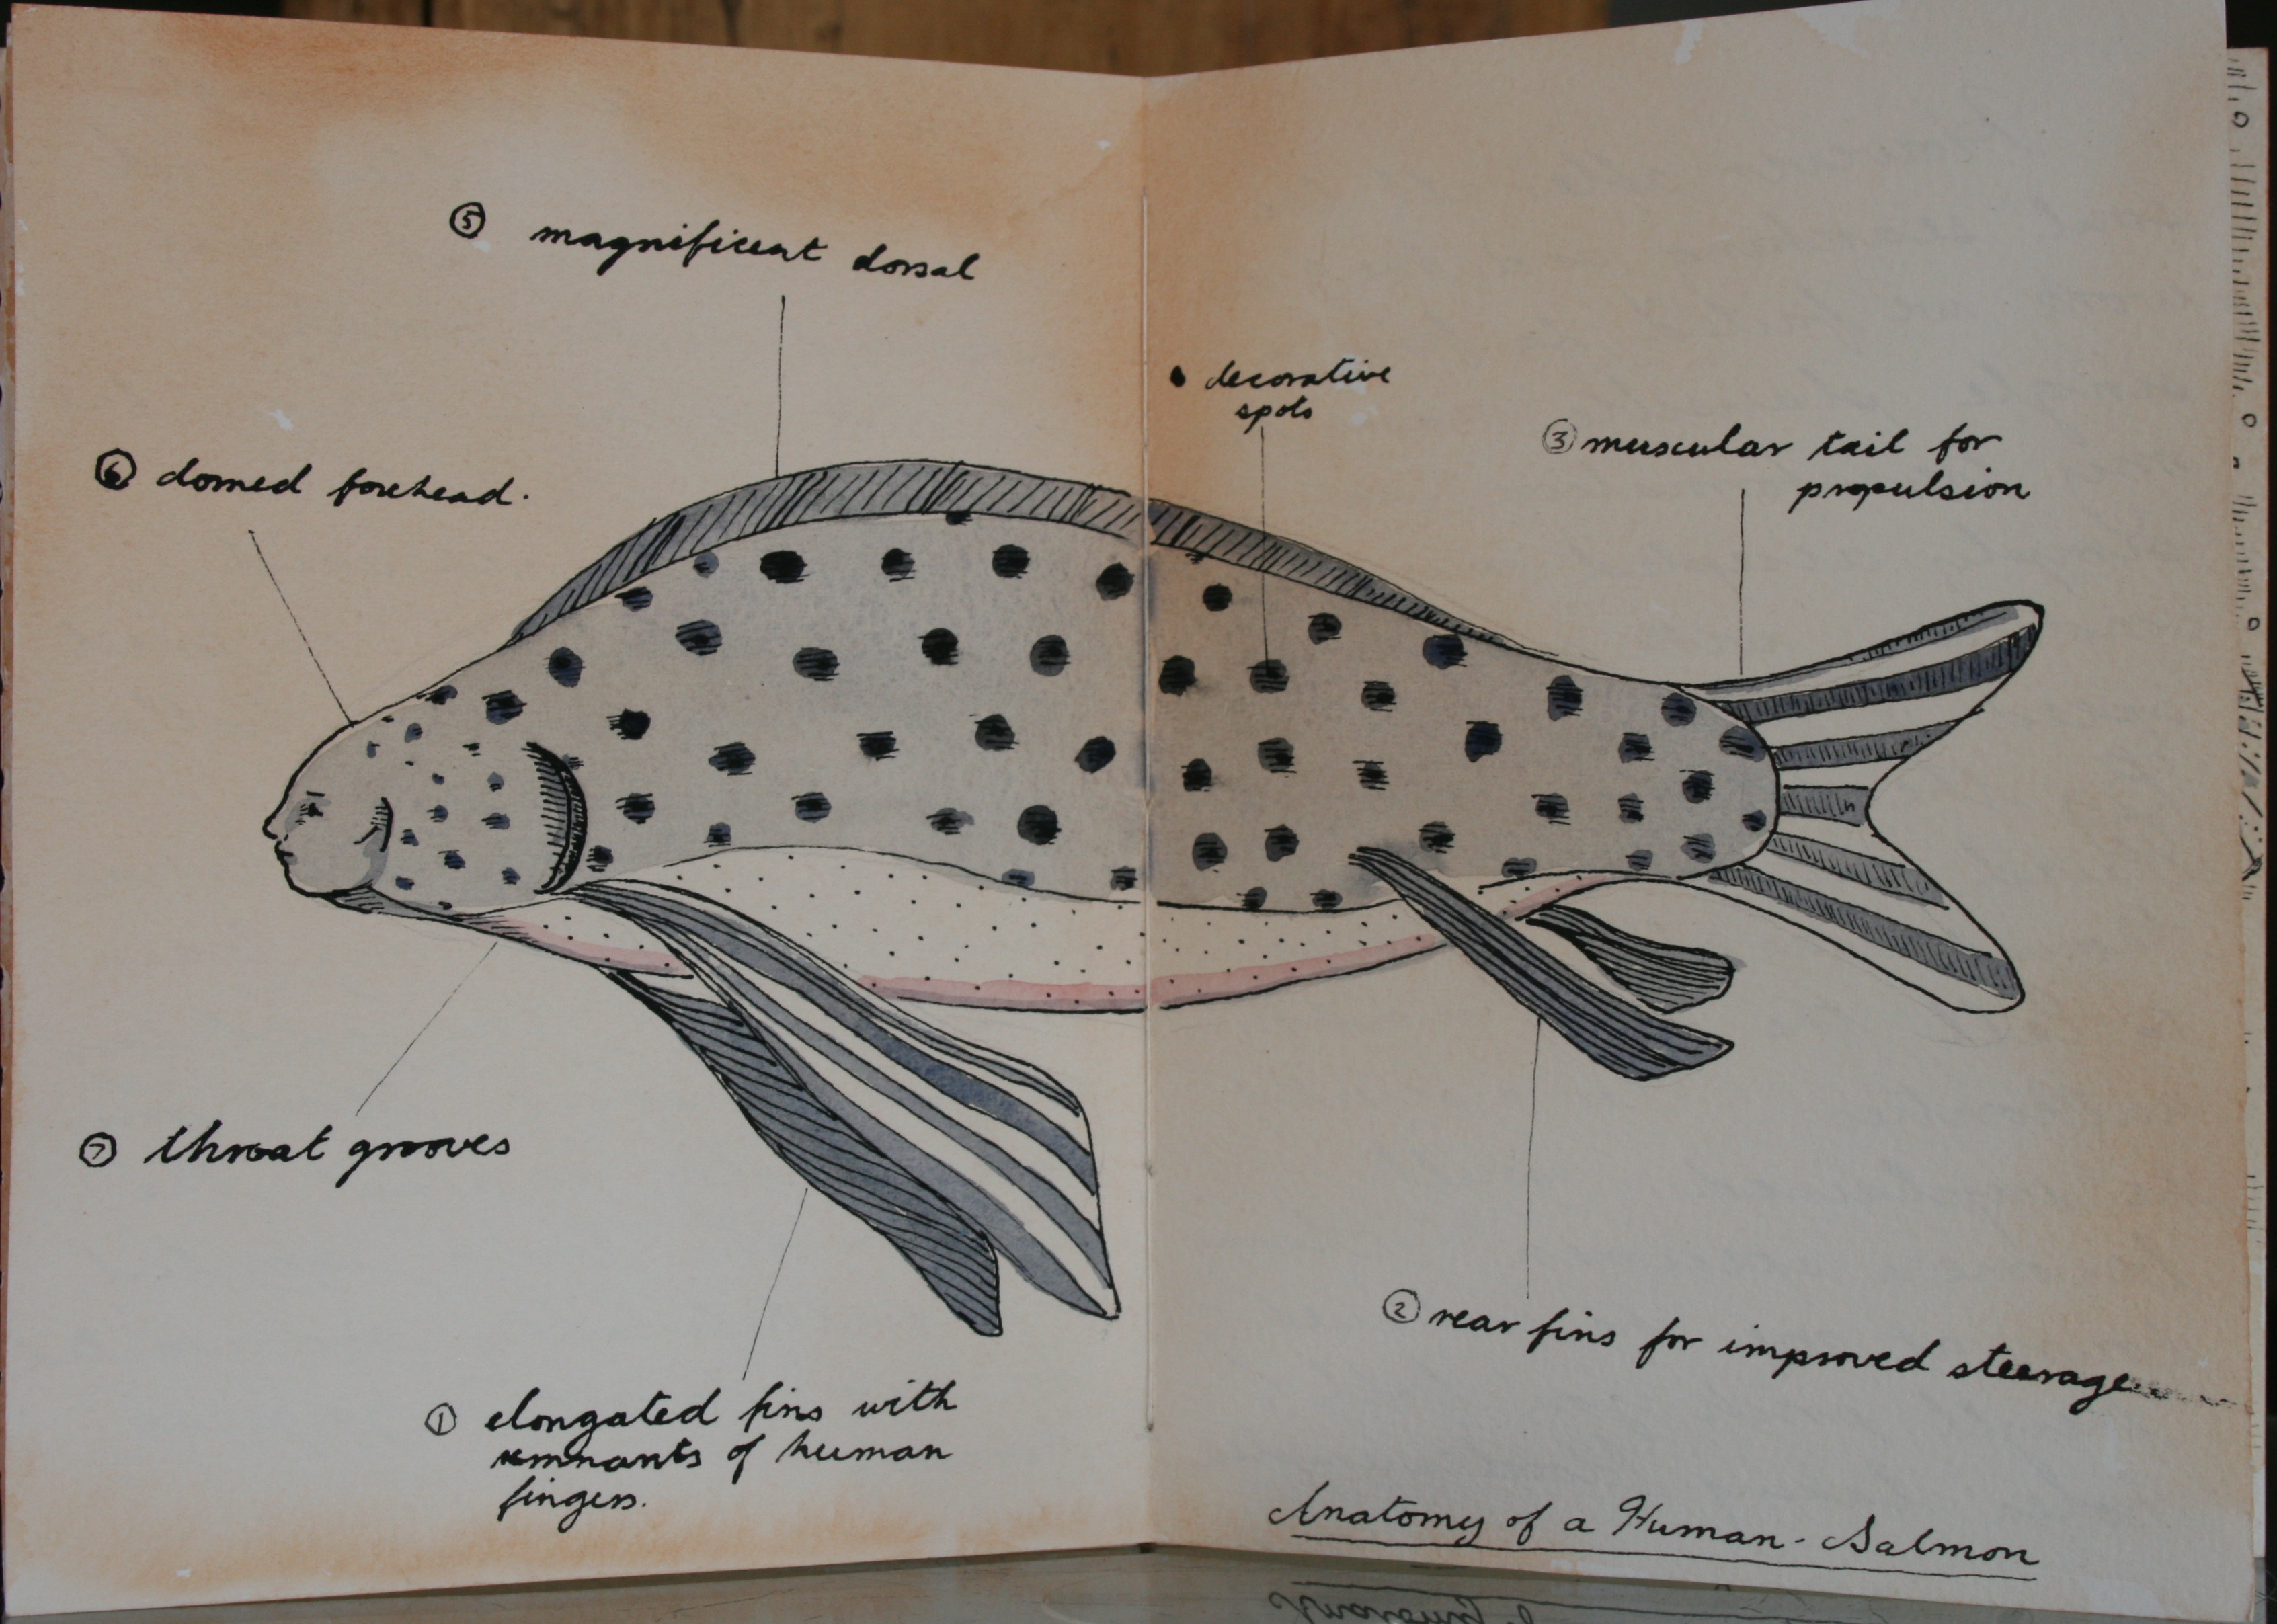 ⑤ magnificent dorsal
• decorative
spots
③ muscular tail for
propulsion
⑥ domed forehead.
⑦ throat grooves
② rear fins for improved steerage
① elongated fins with
remnants of human
fingers.
Anatomy of a Human-Salmon